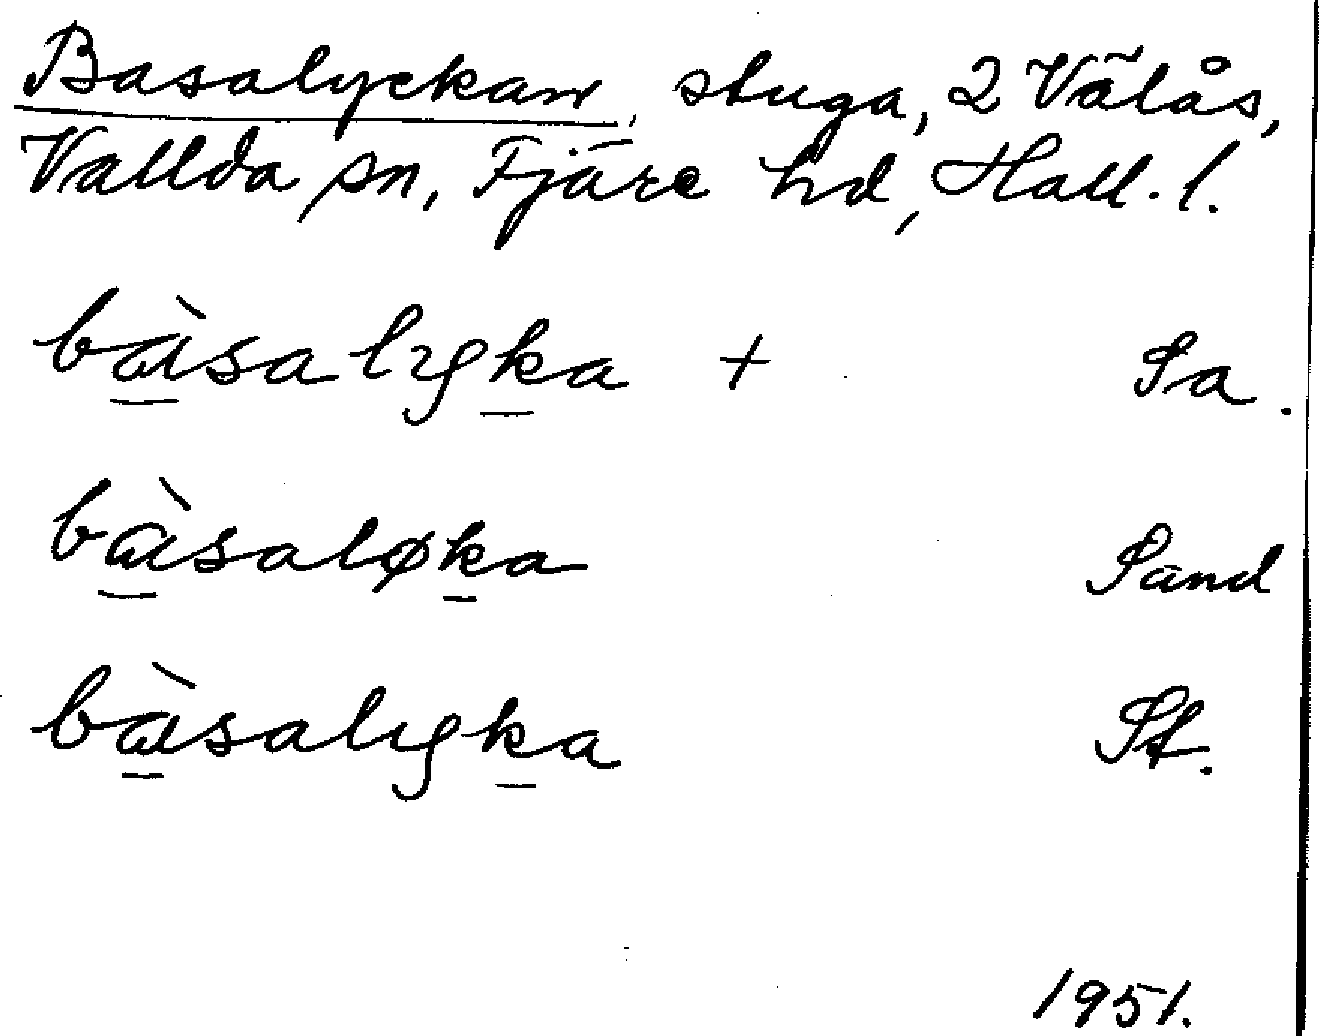 Basalyckan, stuga, 2 Vălås,
Vallda sn, Fjäre hd, Hall. l.
bàsalyka + Sa.
bàsaløka Sand
bàsalyka St.
1951.